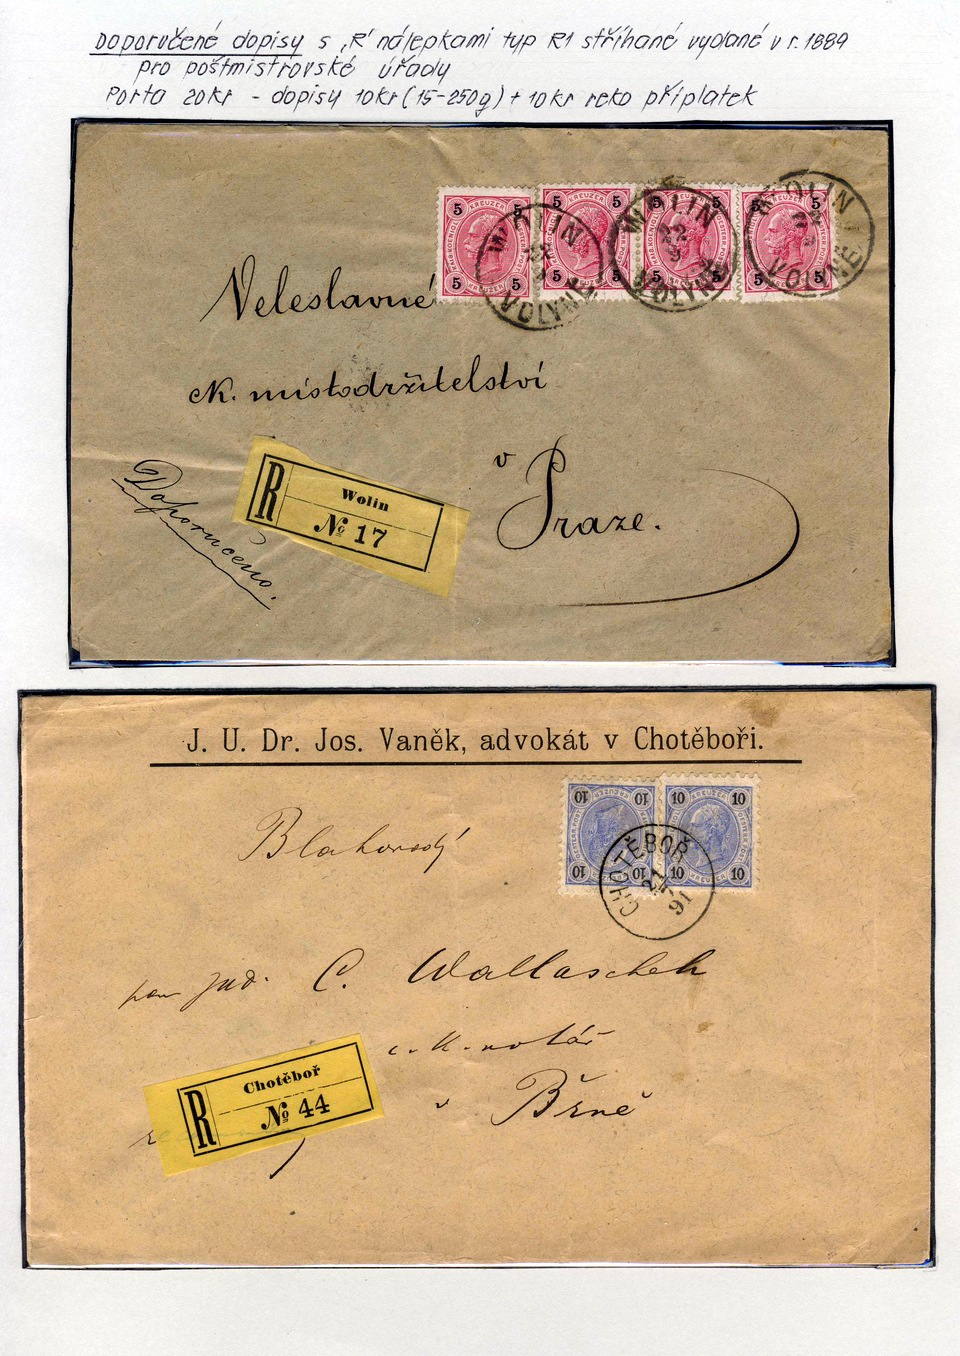 Doporučené dopisy s „R“ nálepkami typ R1 stříhané vydané v r. 1889
pro poštmistrovské úřady
Porta 20kr - dopisy 10kr (15-250g) + 10kr reko příplatek
5 KREUZER 5
5 KREUZER 5
5 KREUZER 5
5 KREUZER 5
WOLIN
VOLYNĚ
WOLIN
VOLYNĚ
WOLIN
VOLYNĚ
Veleslavné
c.k. místodržitelství
v
Praze.
Doporučeno.
R
Wolin
№ 17
J. U. Dr. Jos. Vaněk, advokát v Chotěboři.
10 KREUZER 10
10 KREUZER 10
CHOTĚBOŘ
21
91
Blahorodý
pan Jud. C. Wallaschek
c. k. notář
v Brně
R
Chotěboř
№ 44